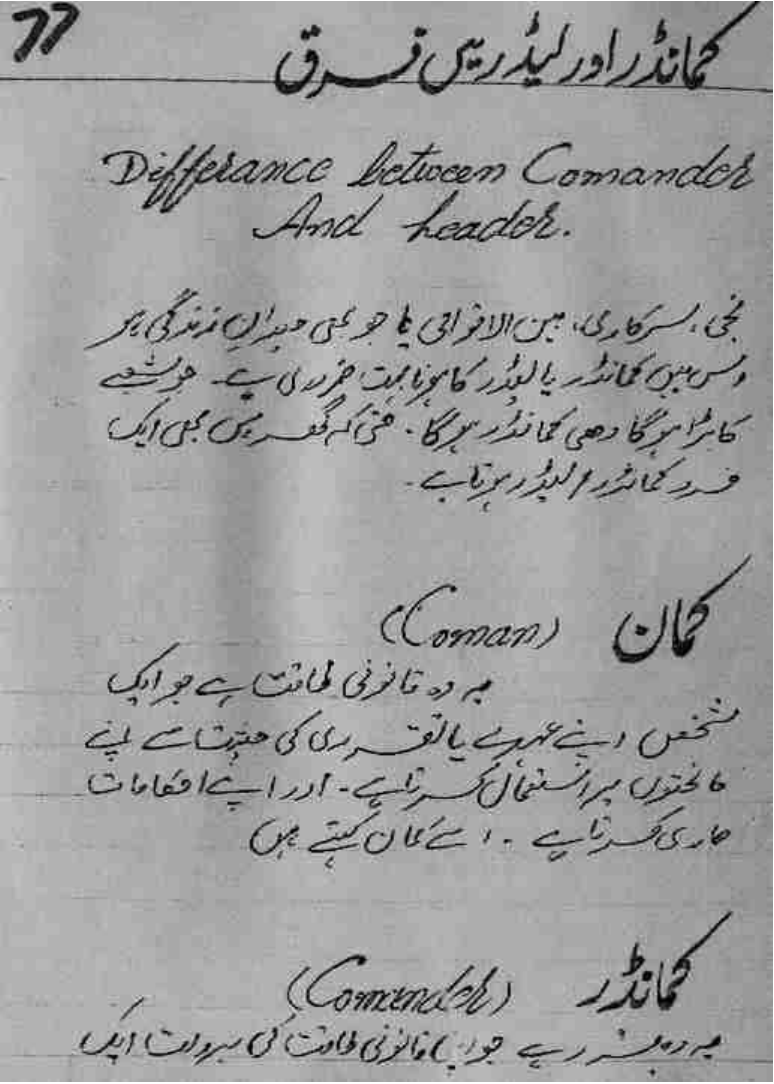 77
کمانڈر اور لیڈر میں فرق
Differance between Comander
And Leader.
نجی، سرکاری، بین الاقوامی یا جو بھی میدانِ زندگی ہو
اس میں کمانڈر یا لیڈر کا ہونا بہت ضروری ہے۔ جو شعبے
کا بڑا ہو گا وھی کمانڈر ہو گا۔ حتیٰ کہ گھر میں بھی ایک
فرد کمانڈر / لیڈر ہوتا ہے۔
کمان (Coman)
یہ وہ قانونی طاقت ہے جو ایک
شخص اپنے عہدے یا تقرری کی حیثیت سے اپنے
ماتحتوں پر استعمال کرتا ہے۔ اور اپنے احکامات
جاری کرتا ہے۔ اسے کمان کہتے ہیں
کمانڈر (Comander)
یہ وہ ہے جو اپنی قانونی طاقت کی بدولت ایک